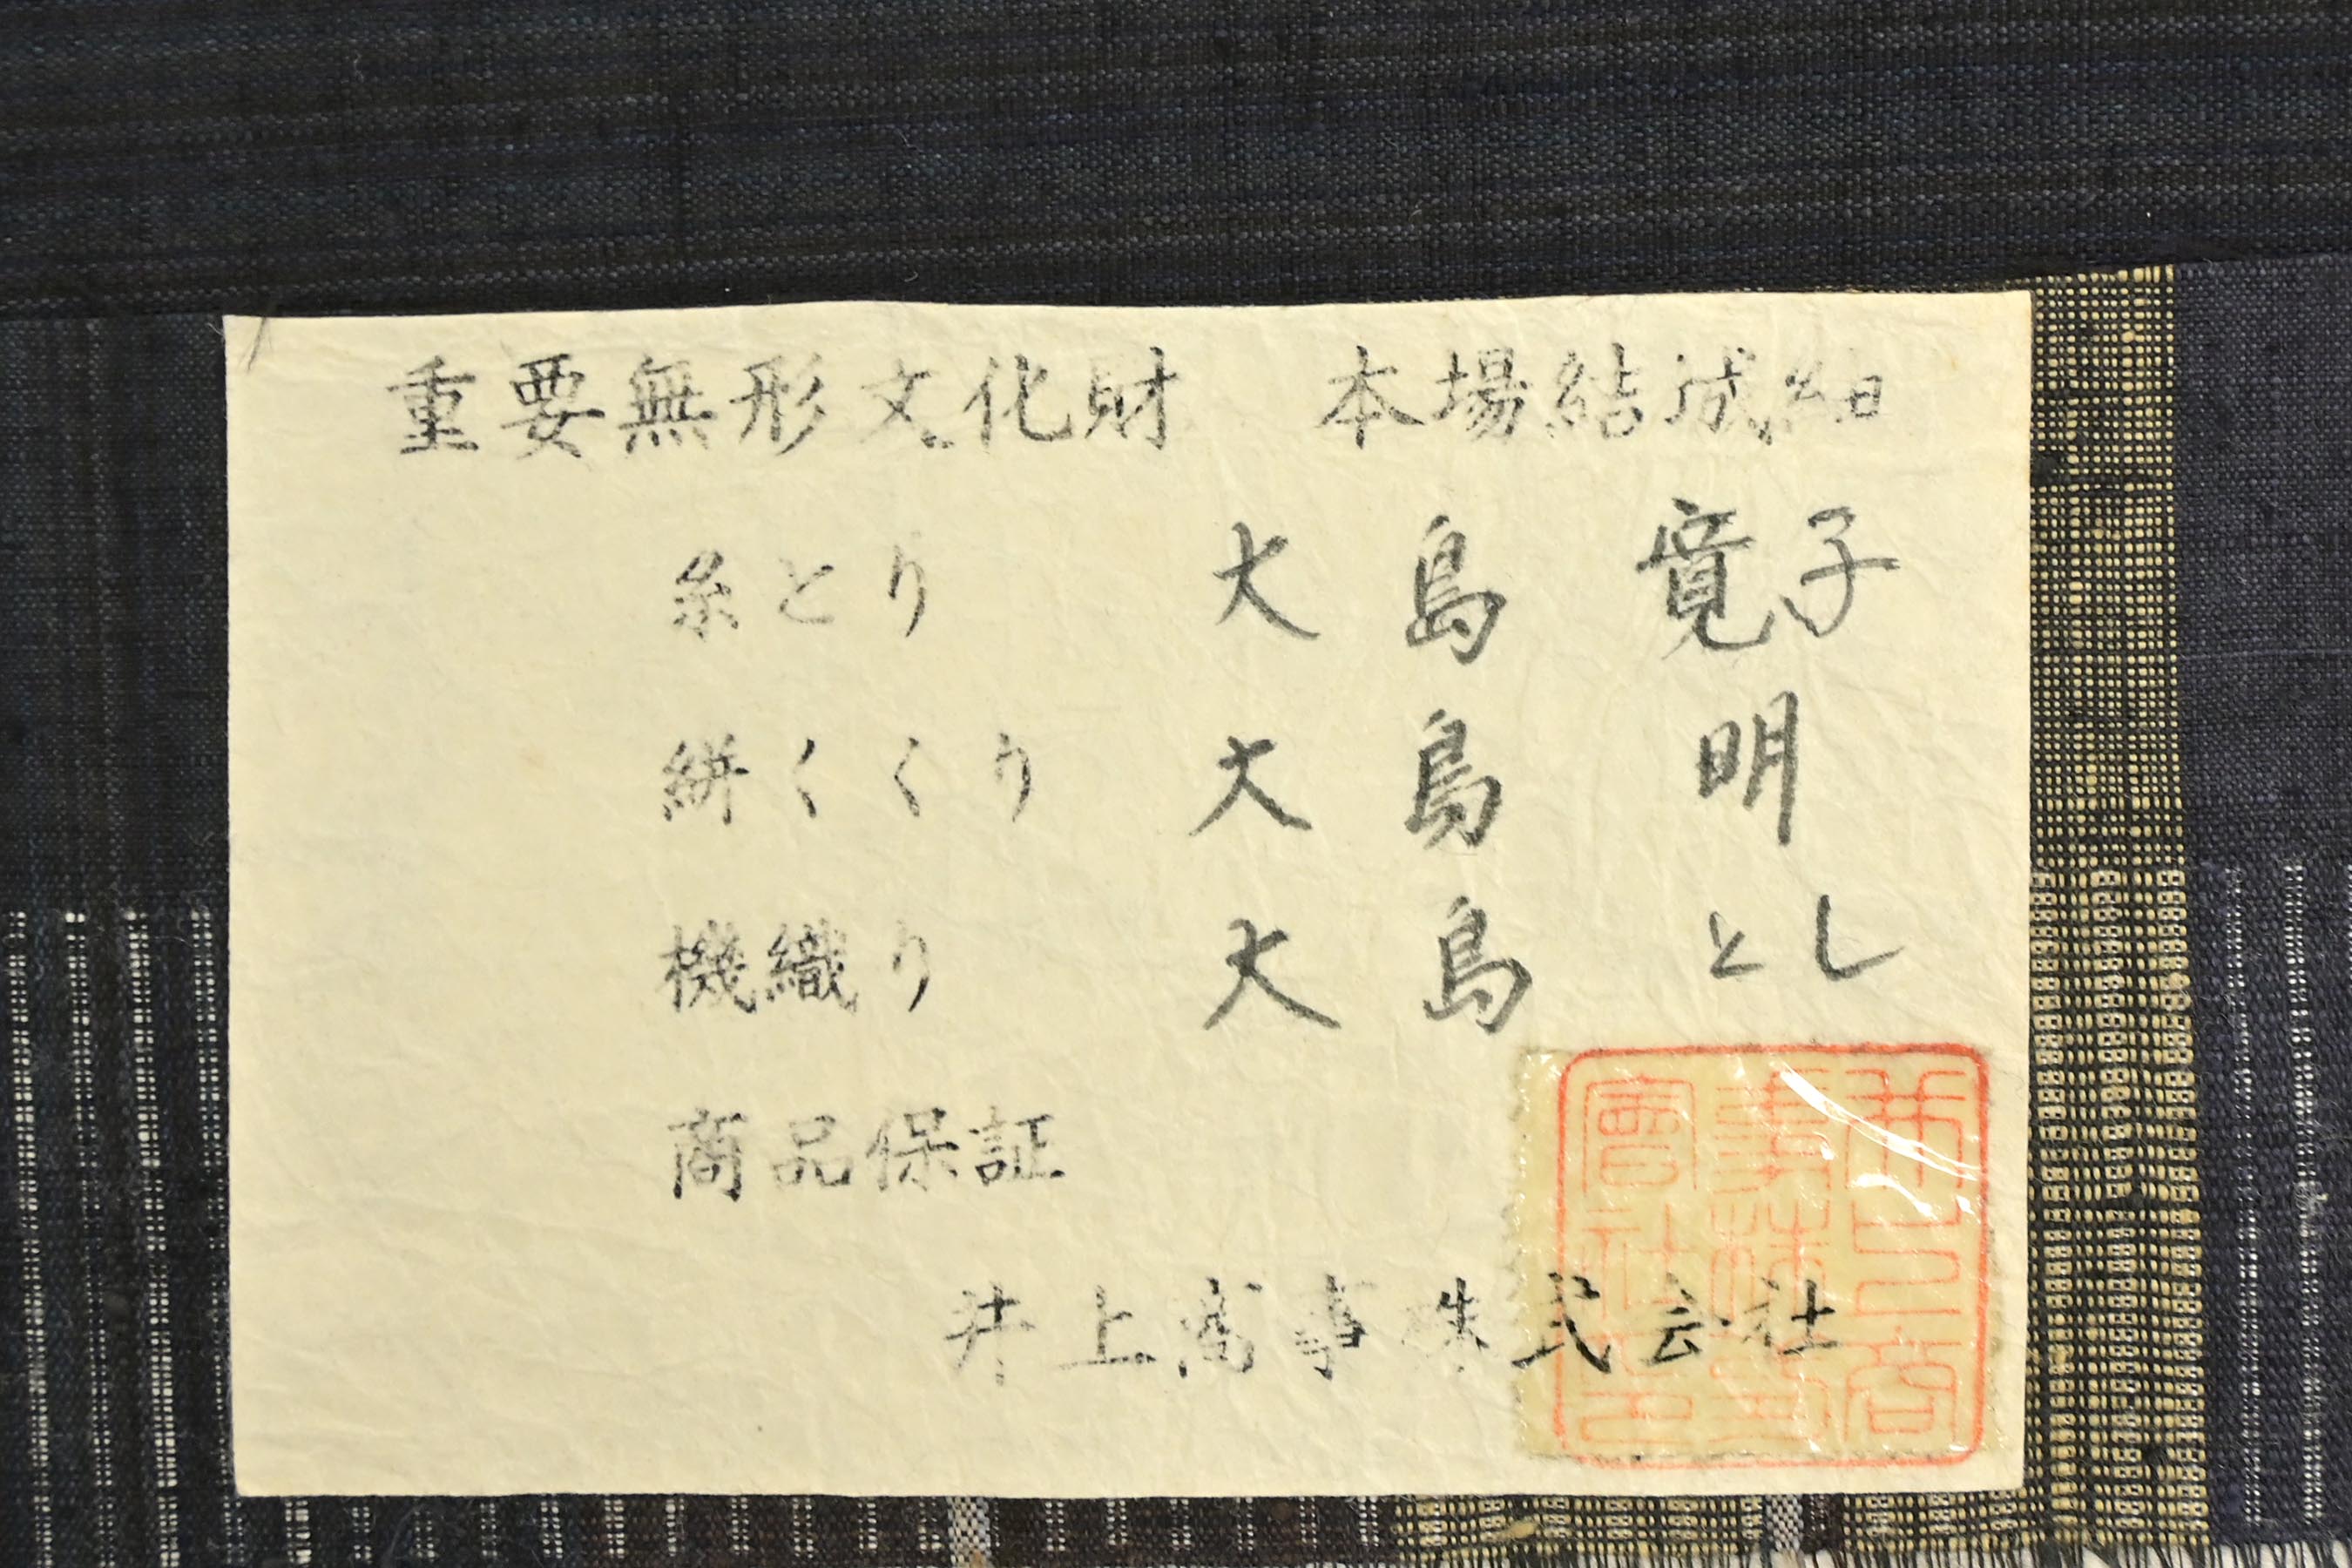 重要無形文化財　本場結城紬
糸とり　大島 寛子
絣くくり　大島 明
機織り　大島 とし
商品保証
井上商事株式会社
井上商事株式會社之印